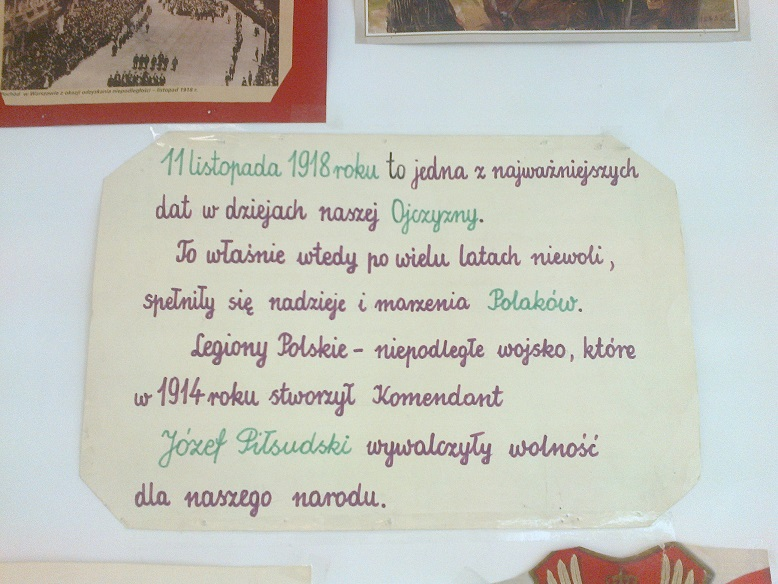 Pochód w Warszawie z okazji odzyskania niepodległości - listopad 1918 r.
11 listopada 1918 roku to jedna z najważniejszych
dat w dziejach naszej Ojczyzny.
To właśnie wtedy po wielu latach niewoli,
spełniły się nadzieje i marzenia Polaków.
Legiony Polskie - niepodległe wojsko, które
w 1914 roku stworzył Komendant
Józef Piłsudski wywalczyły wolność
dla naszego narodu.